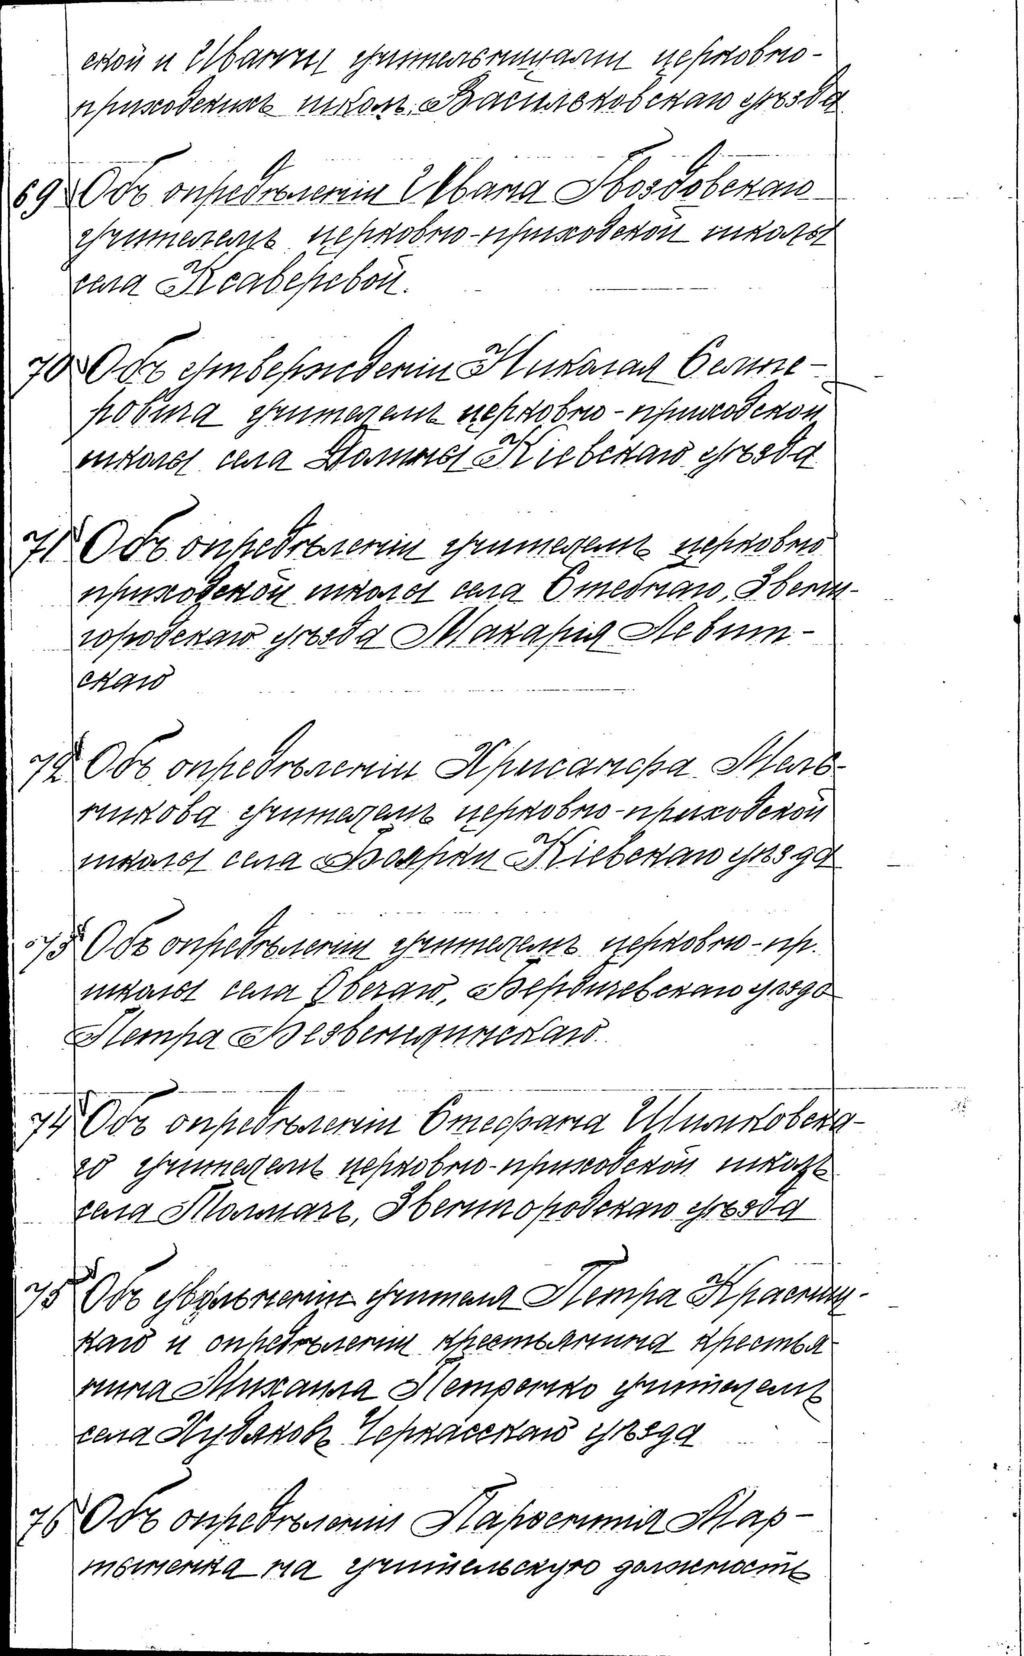 ской и Иванны учительницами церковно-
приходскихъ школъ, Васильковскаго уѣзда
69 Объ опредѣленіи Ивана Гвоздовскаго
учителемъ церковно-приходской школы
села Ксаверевой.
70 Объ утвержденіи Николая Селте-
ровича учителемъ церковно-приходской
школы села Долины Кіевскаго уѣзда
71 Объ опредѣленіи учителемъ церковно
приходской школы села Стебнаго, Звени-
городскаго уѣзда Макарія Левит-
скаго
72 Объ опредѣленіи Хрисанфа Мель-
никова учителемъ церковно-приходской
школы села Боярки Кіевскаго уѣзда
73 Объ опредѣленіи учителемъ церковно-пр.
школы села Овечаго, Бердичевскаго уѣзда
Петра Безвенглинскаго.
74 Объ опредѣленіи Стефана Шимковска-
го учителемъ церковно-приходской школы
села Толмачъ, Звенигородскаго уѣзда
75 Объ увольненіи учителя Петра Красниц-
каго и опредѣленіи крестьянина крестья-
нина Михаила Петренко учителемъ
села Худяковъ Черкасскаго уѣзда
76 Объ опредѣленіи Пароентія Мар-
тыненка на учительскую должность